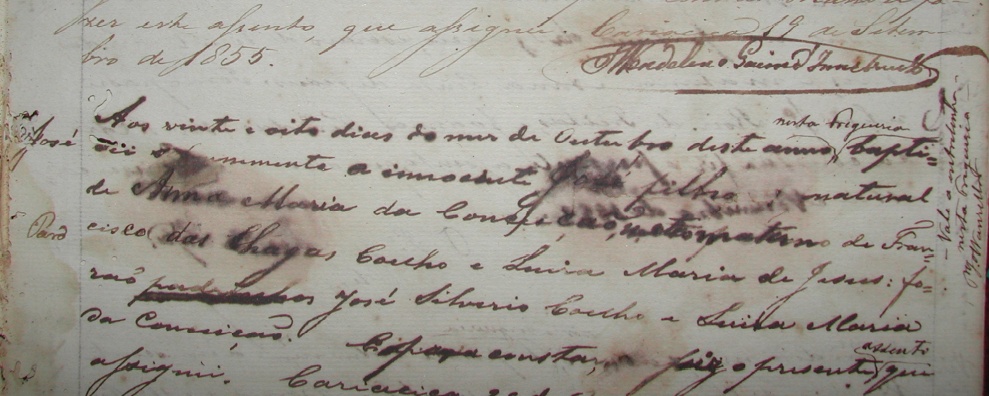 zer este assento, que assignei. Cariacica 19 de Setem-
bro de 1855.
Wendelino Gained Innebruch
José
Pard
Aos vinte e oito dias do mez de Outubro deste anno, nesta freguesia bapti-
sei solemnemente a innocente José filho natural
de Anna Maria da Conceicão, neto paterno de Fran-
cisco das Chagas Coelho e Luiza Maria de Jesus: fo-
rão padrinhos José Silverio Coelho e Luiza Maria
da Conceição. E para constar, fiz o presente assento, que
assignei. Cariacica
Vale a entrelinha
nesta freguesia